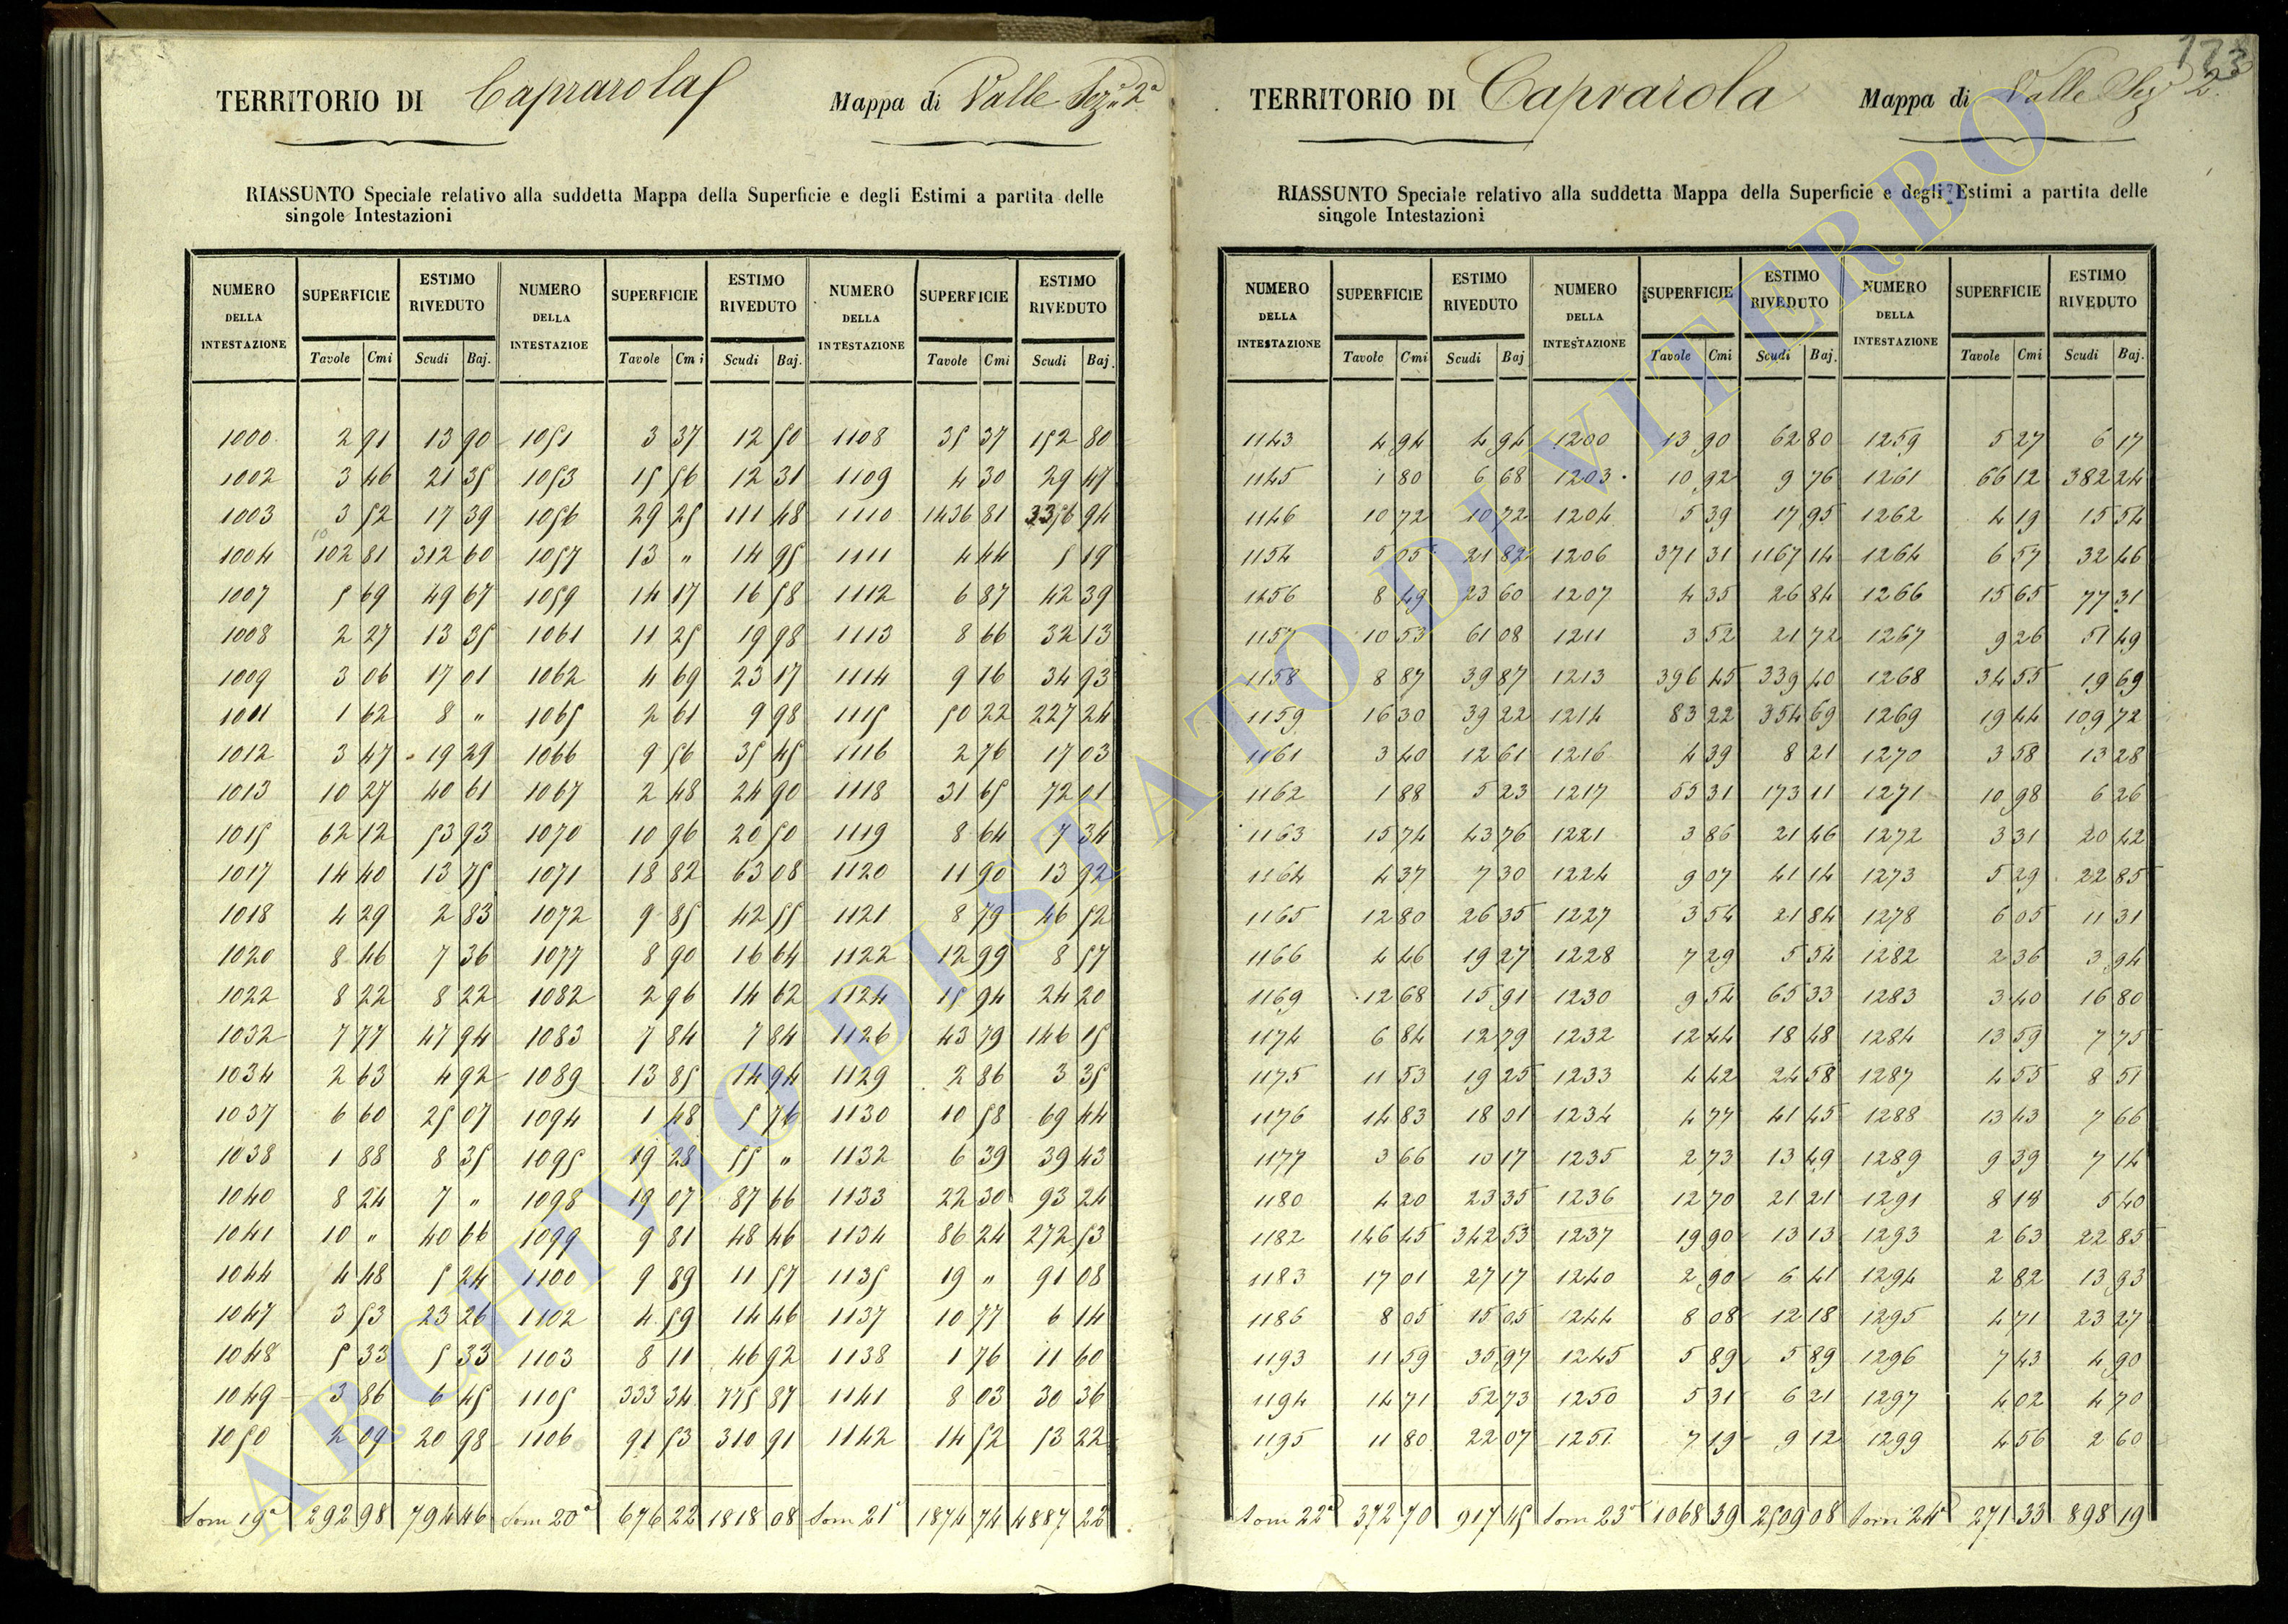 173
TERRITORIO DI Caprarola Mappa di Valle Sez.n 2a
RIASSUNTO Speciale relativo alla suddetta Mappa della Superficie e degli Estimi a partita delle
singole Intestazioni
NUMERO DELLA INTESTAZIONE SUPERFICIE ESTIMO RIVEDUTO NUMERO DELLA INTESTAZIOE SUPERFICIE ESTIMO RIVEDUTO NUMERO DELLA INTESTAZIONE SUPERFICIE ESTIMO RIVEDUTO
Tavole Cmi Scudi Baj. Tavole Cmi Scudi Baj. Tavole Cmi Scudi Baj.
1000 2 91 13 90 1051 3 37 12 50 1108 35 37 152 80
1002 3 46 21 35 1053 15 56 12 31 1109 4 30 29 47
1003 3 52 17 39 1056 29 25 111 48 1110 1436 81 3356 94
1004 102 81 312 60 1057 13 " 14 95 1111 4 44 5 19
1007 5 69 49 67 1059 14 17 16 58 1112 6 87 42 39
1008 2 27 13 35 1061 11 25 19 98 1113 8 66 32 13
1009 3 06 17 01 1062 4 69 23 17 1114 9 16 34 93
1011 1 62 8 " 1065 2 61 9 98 1115 50 22 227 24
1012 3 47 19 29 1066 9 56 35 45 1116 2 76 17 03
1013 10 27 40 61 1067 2 48 24 90 1118 31 65 72 01
1015 62 12 53 93 1070 10 96 20 50 1119 8 64 7 34
1017 14 40 13 75 1071 18 82 63 08 1120 11 90 13 92
1018 4 29 2 83 1072 9 85 42 55 1121 8 79 46 52
1020 8 46 7 36 1077 8 90 16 64 1122 12 99 8 57
1022 8 22 8 22 1082 2 96 14 62 1124 15 94 24 20
1032 7 77 47 94 1083 7 84 7 84 1126 43 79 146 15
1034 2 63 4 92 1089 13 85 14 94 1129 2 86 3 35
1037 6 60 25 07 1094 1 48 5 76 1130 10 58 69 44
1038 1 88 8 35 1095 19 28 55 " 1132 6 39 39 43
1040 8 24 7 " 1098 19 07 87 66 1133 22 30 93 24
1041 10 " 40 66 1099 9 81 48 46 1134 86 24 272 53
1044 4 48 5 24 1100 9 89 11 57 1135 19 " 91 08
1047 3 53 23 26 1102 4 59 14 46 1137 10 77 6 14
1048 5 33 5 33 1103 8 11 46 92 1138 1 76 11 60
1049 3 86 6 45 1105 333 34 775 87 1141 8 03 30 36
1050 2 09 20 98 1106 91 53 310 91 1142 14 52 13 22
Som 19a 292 98 794 46 Som 20a 676 22 1818 08 Som 21a 1874 74 4887 22
TERRITORIO DI Caprarola Mappa di Valle Sez 2.
RIASSUNTO Speciale relativo alla suddetta Mappa della Superficie e degli Estimi a partita delle
singole Intestazioni
NUMERO DELLA INTESTAZIONE SUPERFICIE ESTIMO RIVEDUTO NUMERO DELLA INTESTAZIONE SUPERFICIE ESTIMO RIVEDUTO NUMERO DELLA INTESTAZIONE SUPERFICIE ESTIMO RIVEDUTO
Tavole Cmi Scudi Baj Tavole Cmi Scudi Baj. Tavole Cmi Scudi Baj.
1143 4 94 4 94 1200 13 90 62 80 1259 5 27 6 17
1145 1 80 6 68 1203 10 92 9 76 1261 66 12 382 24
1146 10 72 10 72 1204 5 39 17 95 1262 4 19 15 54
1154 5 05 21 82 1206 371 31 1167 14 1264 6 57 32 46
1156 8 49 23 60 1207 4 35 26 84 1266 15 65 77 31
1157 10 53 61 08 1211 3 52 21 72 1267 9 26 51 49
1158 8 87 39 87 1213 396 45 339 40 1268 34 55 19 69
1159 16 30 39 22 1214 83 22 354 69 1269 19 44 109 72
1161 3 40 12 61 1216 4 39 8 21 1270 3 58 13 28
1162 1 88 5 23 1217 55 31 173 11 1271 10 98 6 26
1163 15 74 43 76 1221 3 86 21 46 1272 3 31 20 42
1164 4 37 7 30 1224 9 07 41 14 1273 5 29 22 85
1165 12 80 26 35 1227 3 54 21 84 1278 6 05 11 31
1166 4 46 19 27 1228 7 29 5 54 1282 2 36 3 94
1169 12 68 15 91 1230 9 54 65 33 1283 3 40 16 80
1174 6 84 12 79 1232 12 44 18 48 1284 13 59 7 75
1175 11 53 19 25 1233 4 42 24 58 1287 4 55 8 51
1176 14 83 18 01 1234 4 77 41 45 1288 13 43 7 66
1177 3 66 10 17 1235 2 73 13 49 1289 9 39 7 14
1180 4 20 23 35 1236 12 70 21 21 1291 8 18 5 40
1182 146 45 342 53 1237 19 90 13 13 1293 2 63 22 85
1183 17 01 27 17 1240 2 90 6 41 1294 2 82 13 93
1186 8 05 15 05 1244 8 08 12 18 1295 4 71 23 27
1193 11 59 35 97 1245 5 89 5 89 1296 7 43 4 90
1194 14 71 52 73 1250 5 31 6 21 1297 4 02 4 70
1195 11 80 22 07 1251 7 19 9 12 1299 4 56 2 60
Som 22a 372 70 917 45 Som 23a 1068 39 2509 08 Som 24a 271 33 898 19
ARCHIVIO DI STATO DI VITERBO